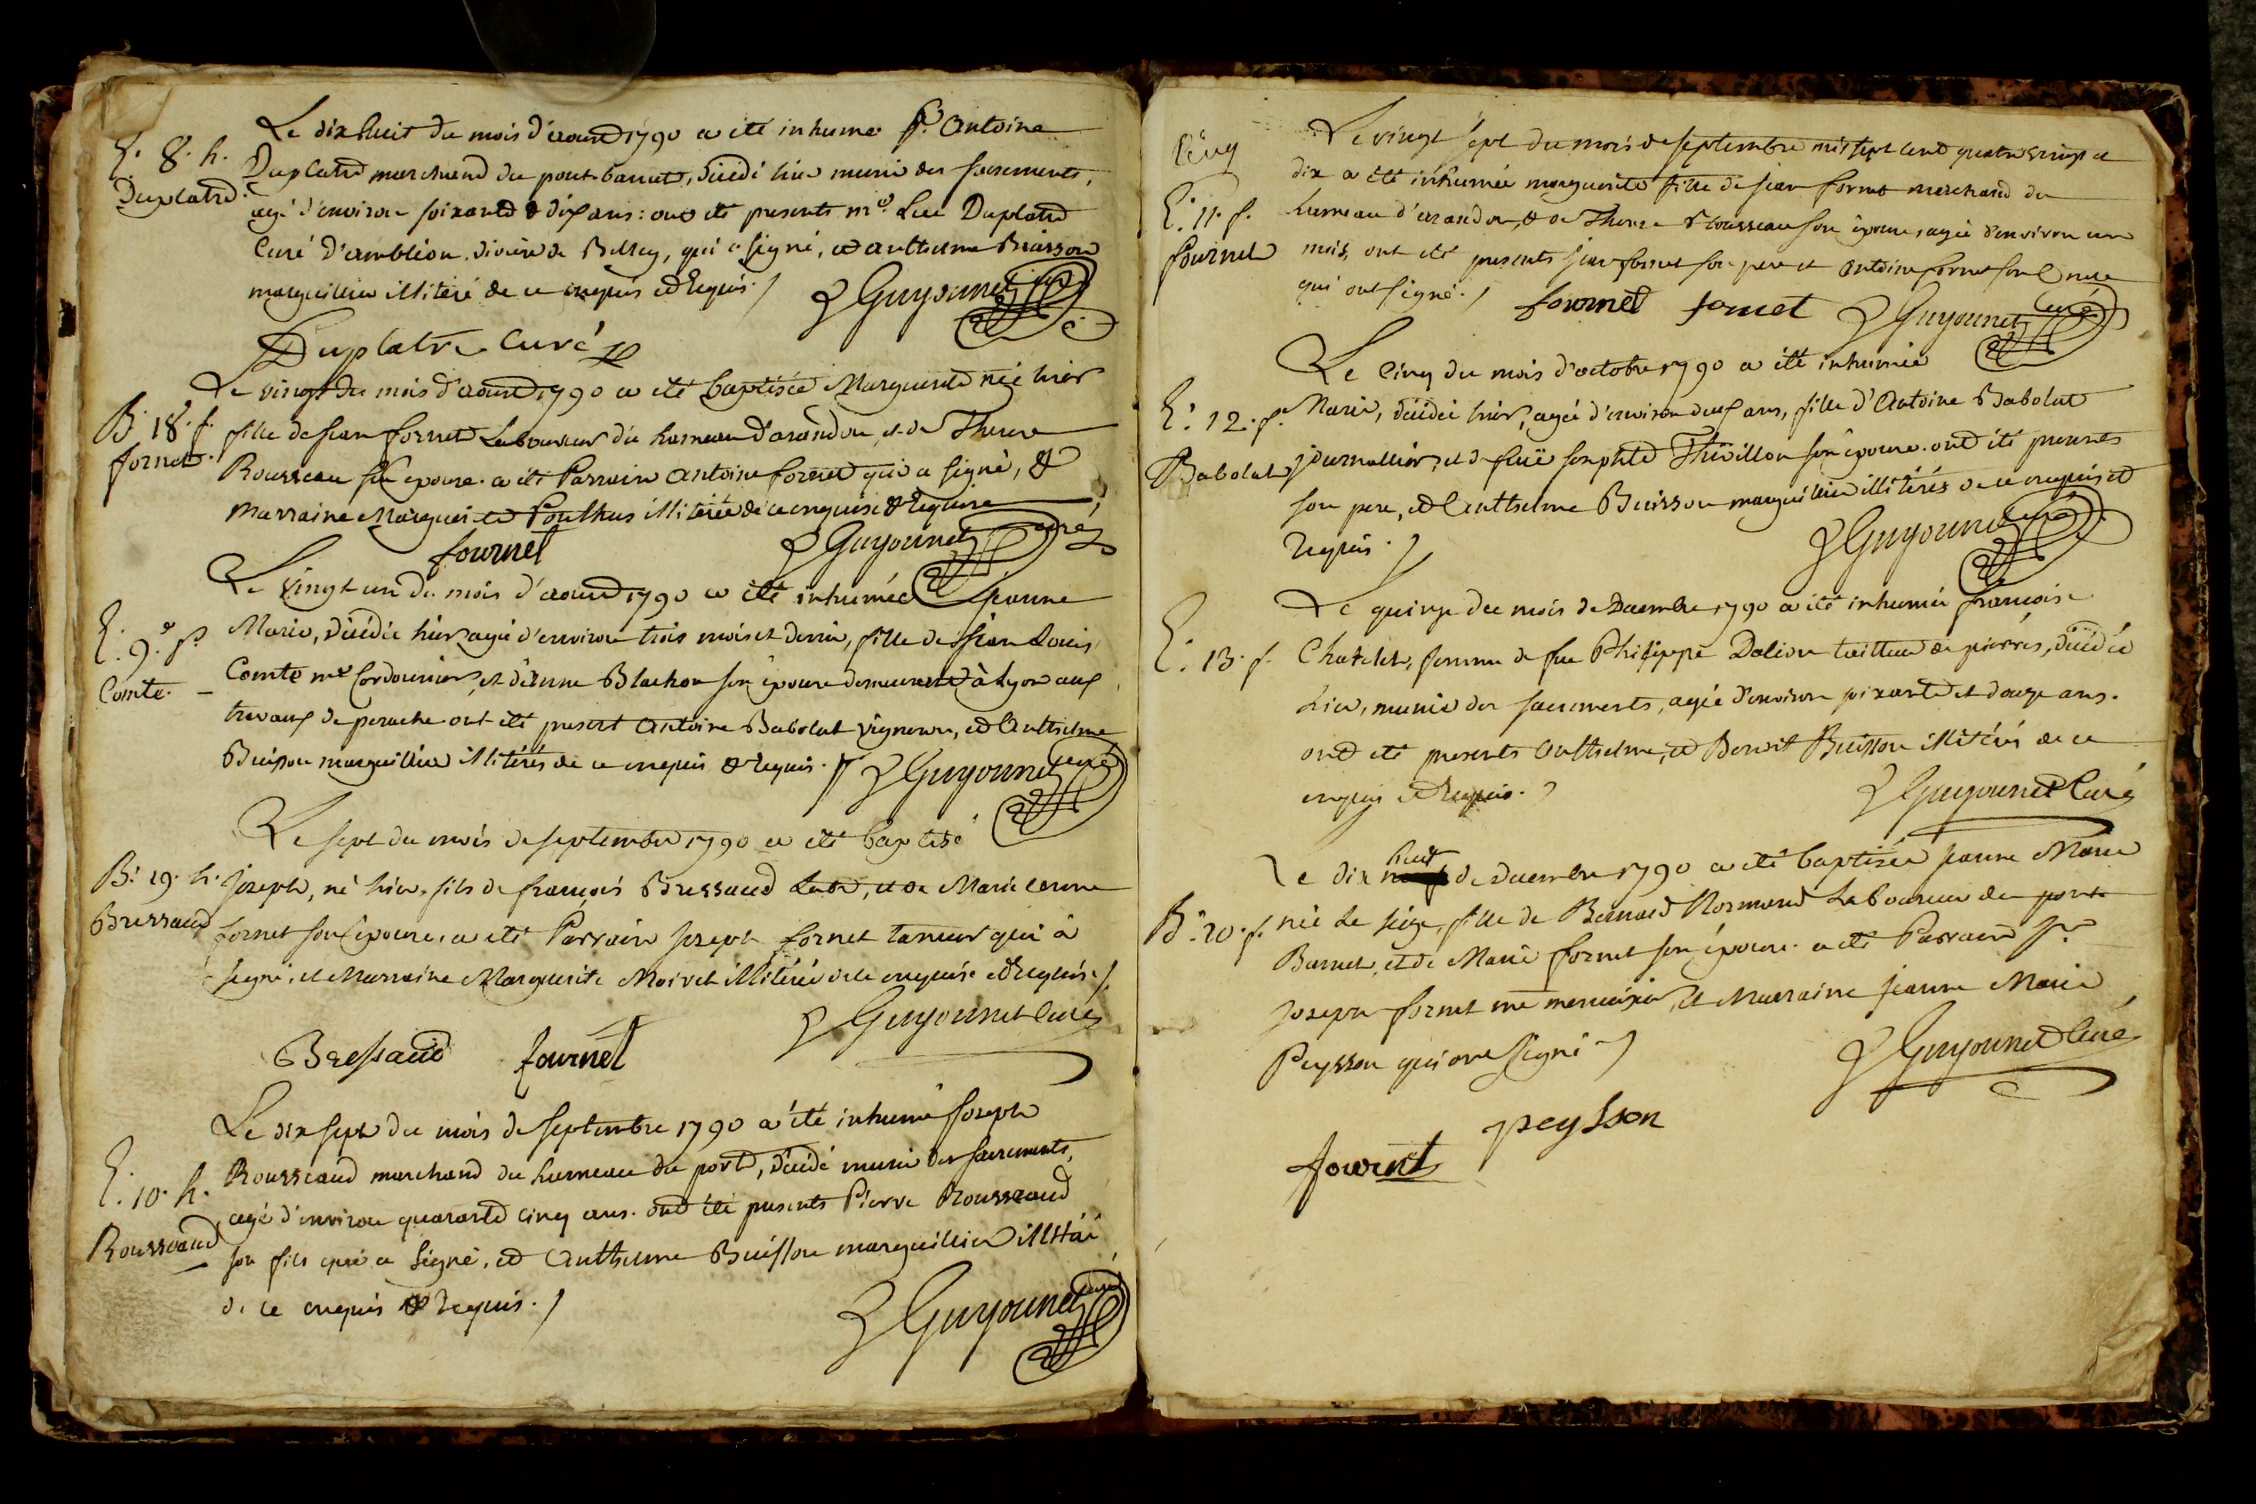 Le dix huit du mois d'aoust 1790 a été inhumé Sr. Antoine
E. 8. h. Duplatre marchand du pont-barret, décédé hier muni des sacrements,
Duplatre. agé d'environ soixante & dix ans : ont été presents mre. Luc Duplatre
Curé d'ambléon, diocèse de Belley, qui a signé, et anthelme Buisson
marguillier illiteré de ce enquis et requis. / Guyonnet curé
Duplatre Curé
Le vingt du mois d'aoust 1790 a été baptisée Marguerite née hier
B. 18. f. fille de jean fornet Laboureur du hameau d'arandon, et de Therese
fornet. Rousseau son épouse. a été Parrain antoine fornet qui a signé, &
Marraine Marguerite illiterée de ce enquise & requise
fournet Guyonnet curé
Le vingt un du mois d'aoust 1790 a été inhumée jeanne
E. 9. f. Marie, décédée hier agée d'environ trois mois et demi, fille de jean Louis
Comte. Comte me. Cordonnier, et d'anne Blachon son épouse demeurants à Lyon aux
travaux de perache ont été present antoine Babolat vigneron, et Anthelme
Buisson marguillier illitérés de ce enquis & requis. Guyonnet curé
Le sept du mois de septembre 1790 a été baptisé
B. 19. h. joseph, né hier, fils de françois Bressaud et de Marie
Bressaud fornet son épouse. a été Parrain joseph fornet tanneur qui a
signé, et Marraine Marguerite Moiret illitérée de ce enquise et requise. /
Guyonnet curé
Bressaud fournet
Le dix sept du mois de septembre 1790 a été inhumé joseph
E. 10. h. Rousseaud marchand du hameau du port, décédé muni des sacrements,
Rousseaud agé d'environ quarante cinq ans. ont été presents Pierre Rousseaud
son fils qui a signé, et Anthelme Buisson marguillier illitéré
de ce enquis & requis. /
Guyonnet curé
Le vingt sept du mois de septembre mil sept cent quatre vingt et
dix a été inhumée marguerite fille de jean fornet marchand du
E. 11. f. hameau d'arandon, & de Therese Rousseau son épouse, agée d'environ un
fournet mois, ont été presents jean fornet son pere et antoine fornet son Oncle
qui ont signé. / fournet fornet Guyonnet curé
Le cinq du mois d'octobre 1790 a été inhumée
E. 12. f. Marie, décédée hier, agée d'environ deux ans, fille d'Antoine Babolat
Babolat journallier, et de feuë josephte Thévillon son épouse. ont été presents
son pere, et Anthelme Buisson marguillier illitérés de ce enquis et
requis. / Guyonnet curé
Le quinze du mois de Decembre 1790 a été inhumée françoise
E. 13. f. Chatelet, femme de feu Philippe Dalion tailleur de pierres, décédée
hier, munie des sacrements, agée d'environ soixante et douze ans.
ont été presents Anthelme, et Benoit Buisson illitérés de ce
enquis et requis. / Guyonnet Curé
Le dix huit de Decembre 1790 a été baptisée jeanne Marie
B. 20. f. née le seize, fille de Bernard Normand Laboureur du pont-
Barret, et de Marie fornet son épouse. a été Parrain Sr.
joseph fornet me menuisier, et Marraine jeanne Marie
Peysson qui ont signé /
Guyonnet Curé
peysson
fournet